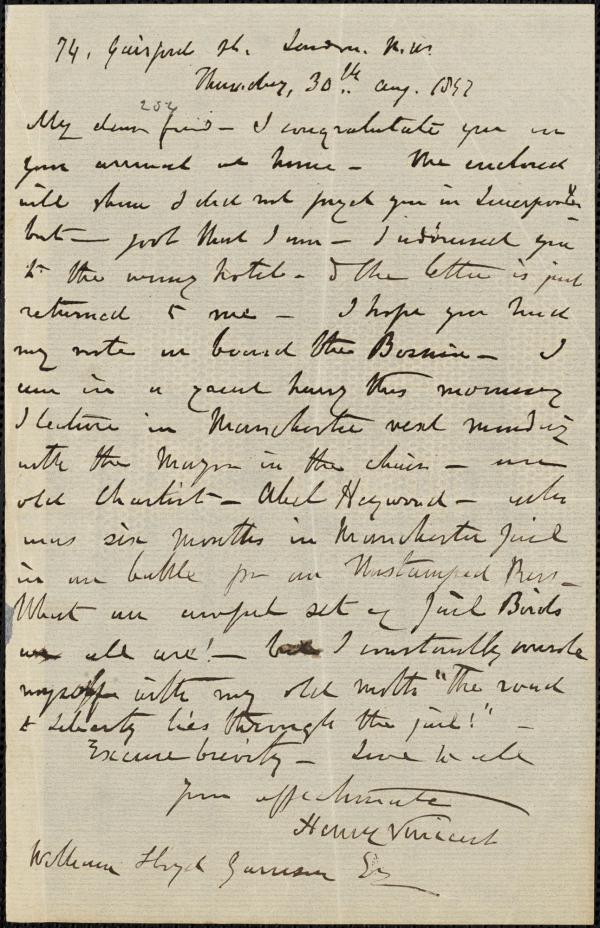 74, Gaisford St. London. N.W.
Thursday, 30th Aug. 1877
254
My dear friend — I congratulate you on
your arrival at home — The enclosed
will show I did not forget you in Liverpool
but — fool that I am — I addressed you
to the wrong hotel — & the letter is just
returned to me — I hope you had
my note on board the Bosnia — I
am in a great hurry this morning
I lecture in Manchester next monday
with the Mayor in the chair — an
old Chartist — Abel Heywood — who
was six months in Manchester Jail
in our battle for an Unstamped Press —
What an awful set of Jail Birds
we all are! — but I constantly console
myself with my old motto "The road
to Liberty lies through the jail!" —
Excuse brevity — Love to all
Yours affectionately
Henry Vincent
William Lloyd Garrison Esq